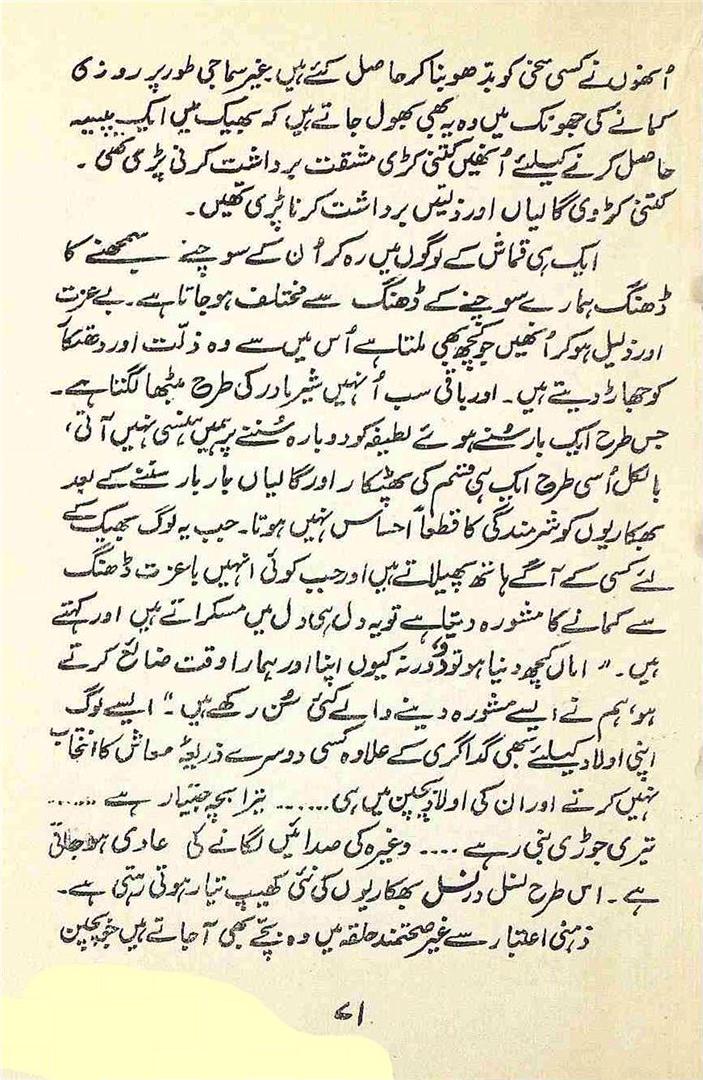 اُنھوں نے کسی سخی کو بدّھو بنا کر حاصل کئے ہیں بغیر سماجی طور پر روز 6
کمانے کی جھونک میں وہ یہ بھی بھول جاتے ہیں کہ بھیک میں ایک پیسہ
حاصل کرنے کیلئے اُنھیں کتنی کڑی مشقت برداشت کرنی پڑی تھی ۔
کتنی کڑوی گالیاں اور ذلتیں برداشت کرنا پڑی تھیں۔
ایک ہی قماش کے لوگوں میں رہ کر اُن کے سوچنے سمجھنے کا
ڈھنگ ہمارے سوچنے کے ڈھنگ سے مختلف ہو جاتا ہے۔ بے عزت
اور ذلیل ہو کر اُنھیں جو کچھ بھی ملتا ہے اُس میں سے وہ ذلّت اور دھتکار
کو جھاڑ دیتے ہیں۔ اور باقی سب اُنہیں شیر مادر کی طرح میٹھا لگتا ہے۔
جس طرح ایک بار سُنے ہوئے لطیفہ کو دوبارہ سُننے پر ہمیں ہنسی نہیں آتی،
بالکل اُسی طرح ایک ہی قسم کی پھٹکار اور گالیاں بار بار سننے کے بعد
بھکاریوں کو شرمندگی کا قطعاً احساس نہیں ہوتا۔ جب یہ لوگ بھیک کے
لئے کسی کے آگے ہاتھ پھیلاتے ہیں اور جب کوئی انہیں باعزت ڈھنگ
سے کمانے کا مشورہ دیتا ہے تو یہ دل ہی دل میں مسکراتے ہیں اور کہتے
ہیں۔ " اماں کچھ دینا ہو تو دو ورنہ کیوں اپنا اور ہمارا وقت ضائع کرتے
ہو، ہم نے ایسے مشورہ دینے والے کئی سُن رکھے ہیں۔" ایسے لوگ
اپنی اولاد کیلئے بھی گداگری کے علاوہ کسی دوسرے ذریعۂ معاش کا انتخاب
نہیں کرتے اور ان کی اولاد بچپن میں ہی ...... تیرا بچہ جیتا رہے ......
تیری جوڑی بنی رہے .... وغیرہ کی صدائیں لگانے کی عادی ہو جاتی
ہے۔ اس طرح نسل در نسل بھکاریوں کی نئی کھیپ تیار ہوتی رہتی ہے۔
ذہنی اعتبار سے غیر صحتمند حلقہ میں وہ بچے بھی آ جاتے ہیں جو بچپن
۷۱